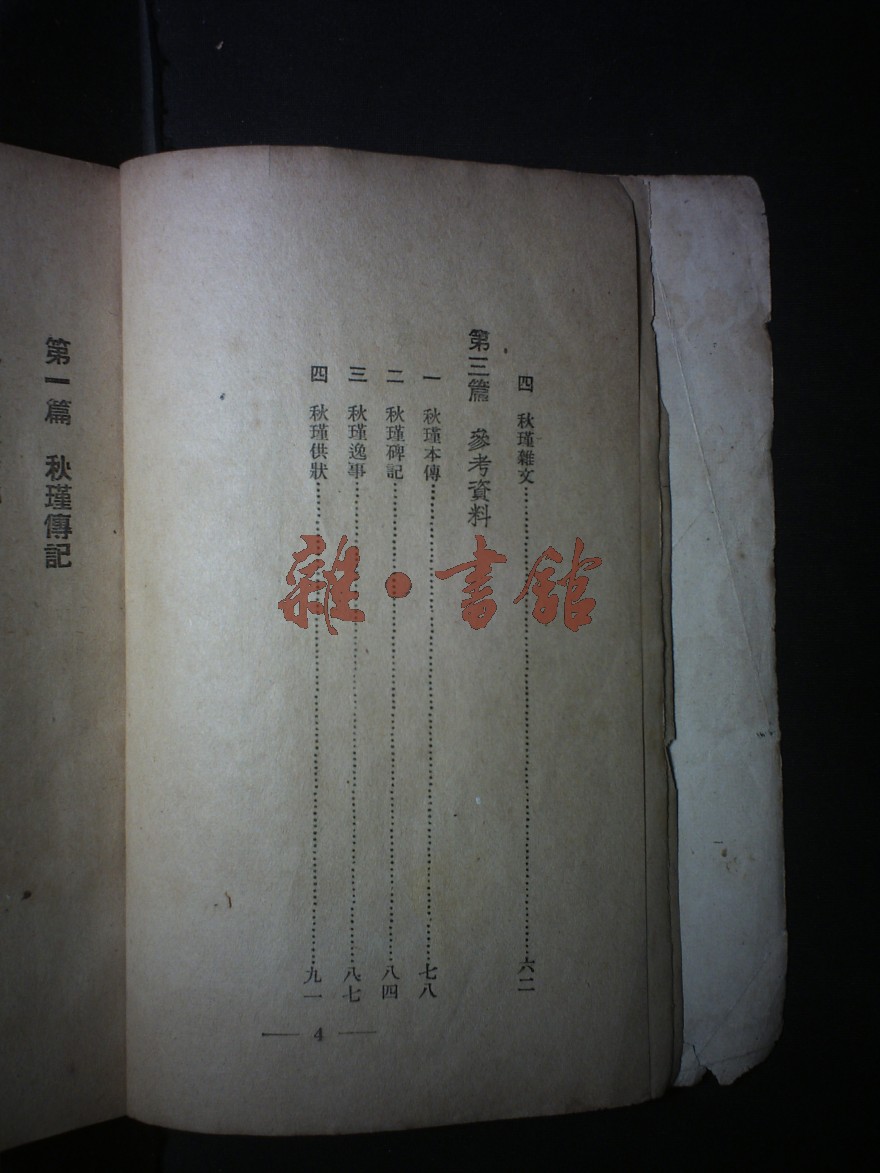 四 秋瑾雜文…………六二
第三篇 參考資料
一 秋瑾本傳…………七八
二 秋瑾碑記…………八四
三 秋瑾逸事…………八七
四 秋瑾供狀…………九一
— 4 —
第一篇 秋瑾傳記
雜·書館